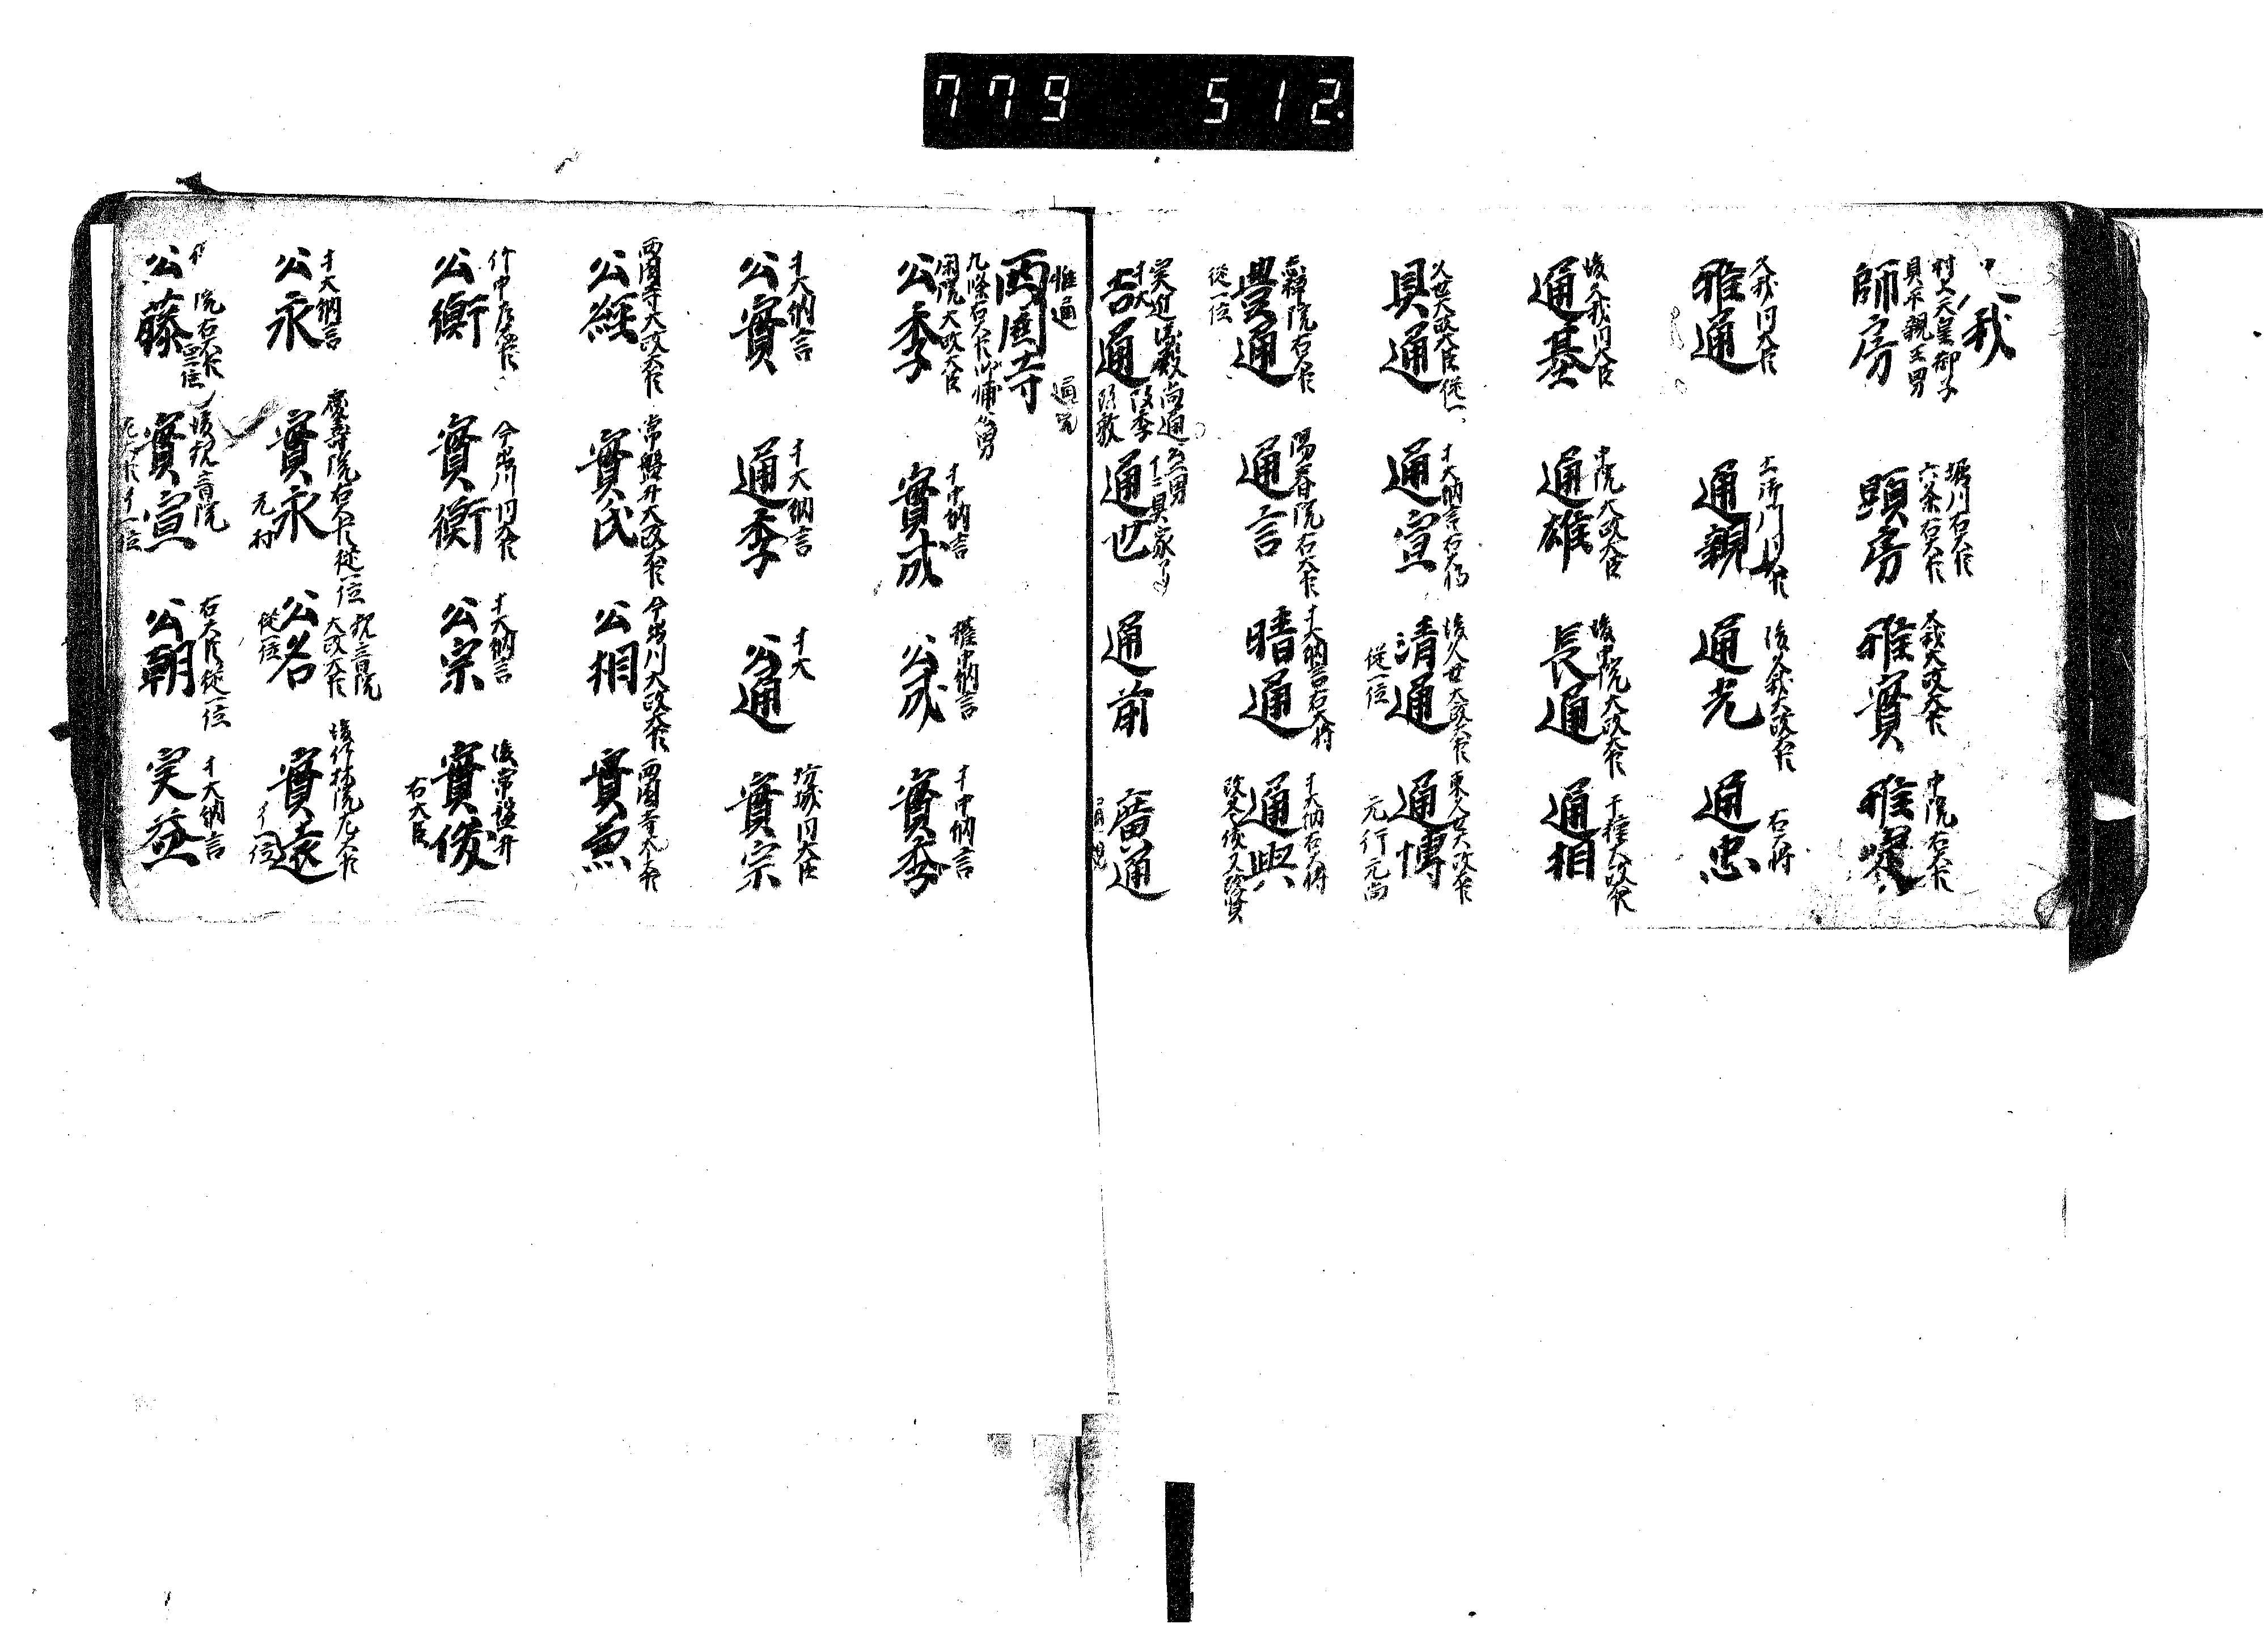 779 512
久我
村上天皇御子
具平親王男
師房
堀川右大臣
六条右大臣
顕房
久我太政大臣
雅實
中院右大臣
雅定
久我内大臣
雅通
土御門内大臣
通親
後久我太政大臣
通光
右大将
通忠
後久我内大臣
通基
中院太政大臣
通雄
後中院太政大臣
長通
千種太政大臣
通相
久世太政大臣 従一
具通
大納言右大将
通宣
後久世太政大臣
清通
従一位
東久世太政大臣
通博
元行元尚
右大臣
豊通
従一位
陽春院右大臣
通言
大納言右大将
晴通
大納右大将
通興
改
通
尚通公男
通世
具家
通前
廣通
惟通 通
西園寺
九條右大臣師輔公男
閑院太政大臣
公季
中納言
實成
権中納言
公成
中納言
實季
大納言
公實
大納言
通季
大
公通
坊城内大臣
實宗
西園寺太政大臣
公経
常盤井太政大臣
實氏
今出川太政大臣
公相
西園寺太政大臣
實兼
竹中左大臣
公衡
今出川内大臣
實衡
大納言
公宗
後常盤井
實俊
右大臣
大納言
公永
右大臣従一位
實永
元
観音院
太政大臣
公名
従一位
後竹林院左大臣
實遠
院右大臣
公藤
後観音院
實宣
右大臣従一位
公朝
大納言
実益